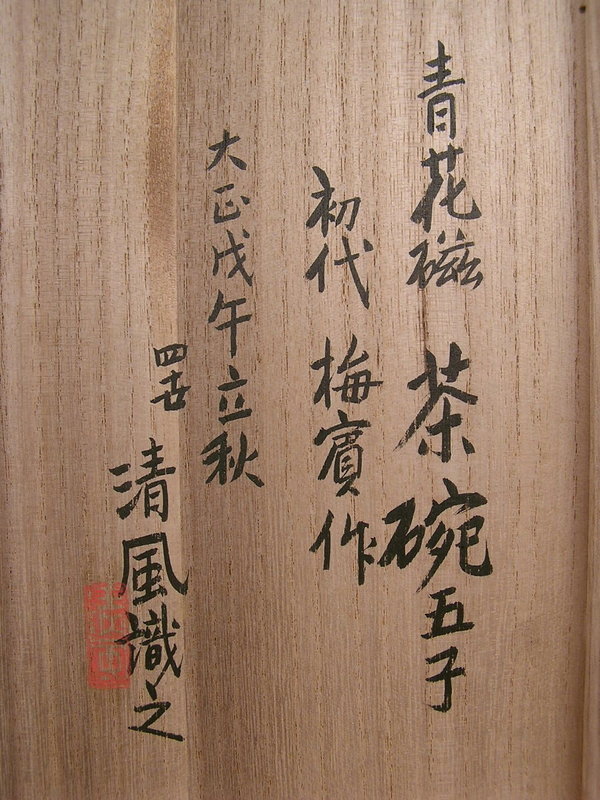 青花磁 茶碗五子
初代 梅賓作
大正戊午立秋
四世 清風識之